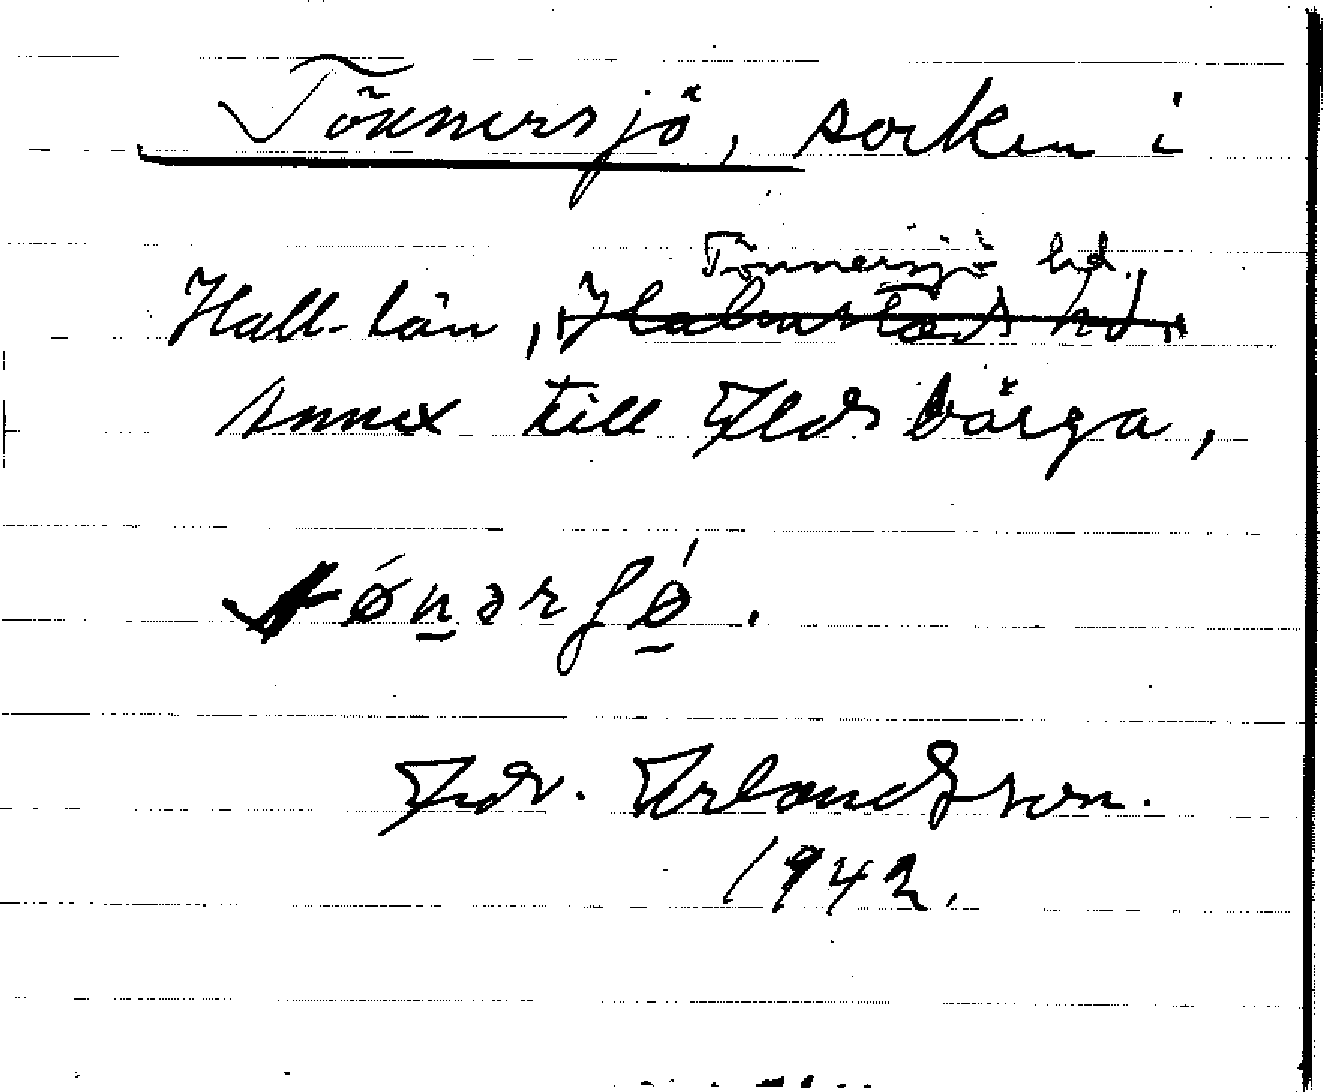 Tönnersjö, socken i
Tönnersjö hd.,
Hall-län, Halmstads hd.,
annex till Eldsbärga,
tǿn̲ərʃǿ̲.
Edv. Erlandsson.
1942.